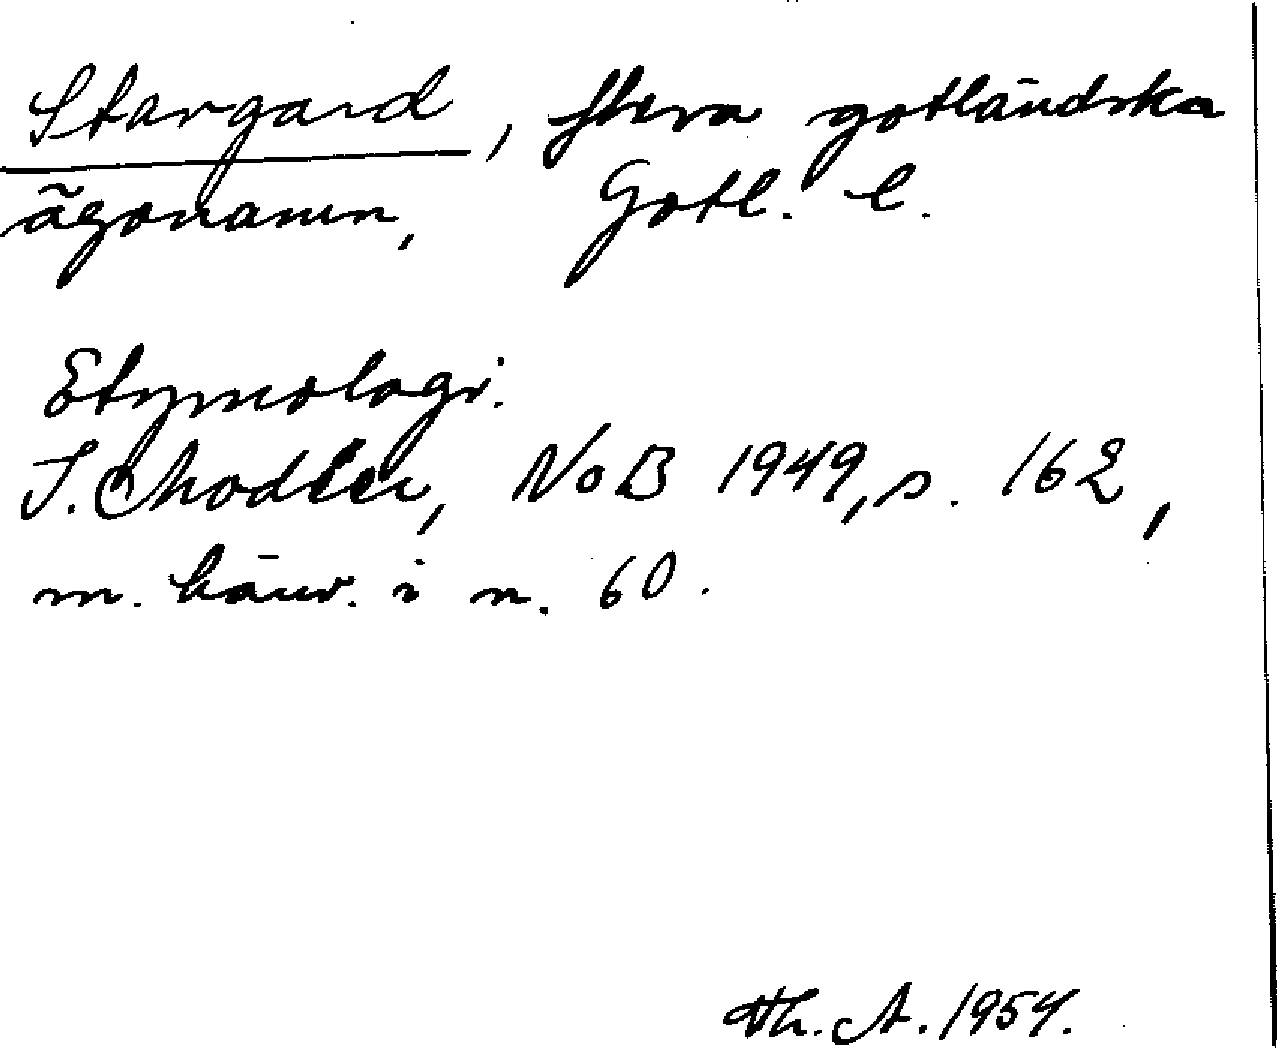 Stavgard, flera gotländska
ägonamn, Gotl. l.
Etymologi.
I. Modéer, NoB 1949, s. 162,
m. hänv. i n. 60.
Th. A. 1954.